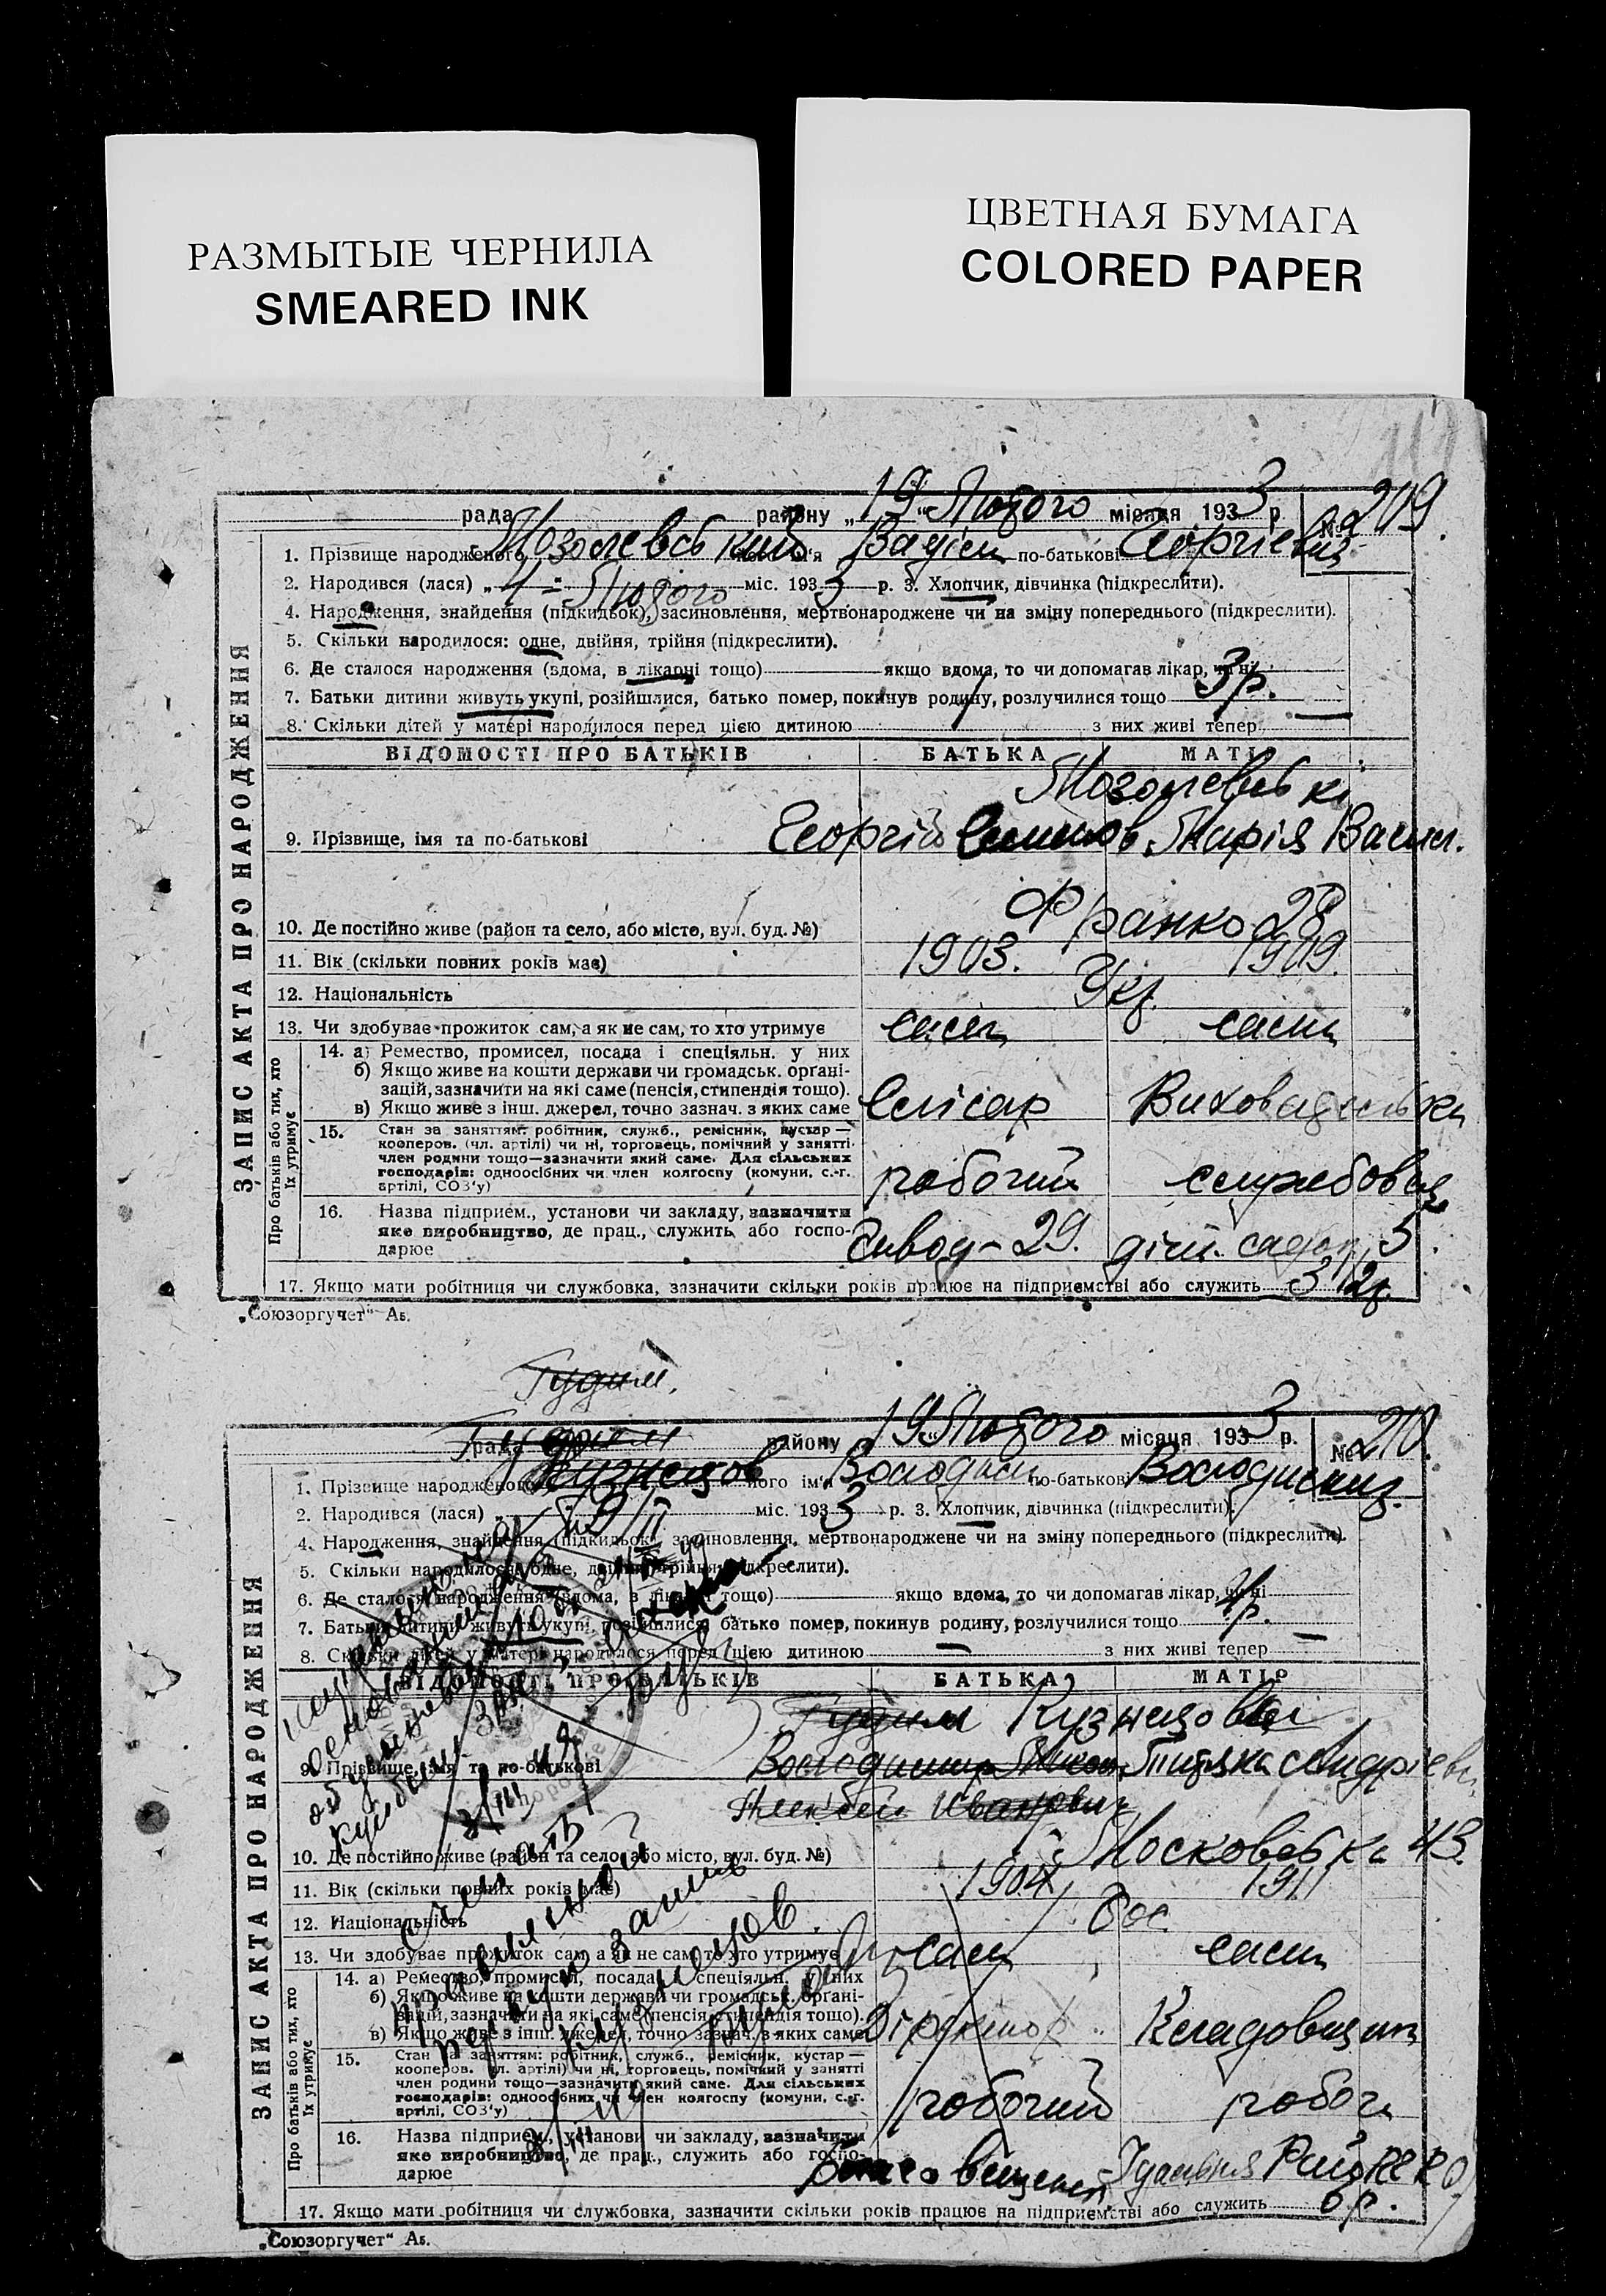 РАЗМЫТЫЕ ЧЕРНИЛА
SMEARED INK
ЦВЕТНАЯ БУМАГА
COLORED PAPER
рада району „19“ Лютого місяця 1933 р. № 209.
ЗАПИС АКТА ПРО НАРОДЖЕННЯ
1. Прізвище народженого Мозолевський його ім'я Вадім по-батькові Георгієвич
2. Народився (лася) „1“ Лютого міс. 1933 р. 3. Хлопчик, дівчинка (підкреслити).
4. Народження, знайдення (підкидьок), засиновлення, мертвонароджене чи на зміну попереднього (підкреслити).
5. Скільки народилося: одне, двійня, трійня (підкреслити).
6. Де сталося народження (вдома, в лікарні тощо) якщо вдома, то чи допомагав лікар, чи ні
7. Батьки дитини живуть укупі, розійшлися, батько помер, покинув родину, розлучилися тощо 3 р.
8. Скільки дітей у матері народилося перед цією дитиною з них живі тепер
ВІДОМОСТІ ПРО БАТЬКІВ БАТЬКА МАТІР
Мозолевські
9. Прізвище, імя та по-батькові Георгій Марія Васил.
10. Де постійно живе (район та село, або місто, вул. буд. №) Франко 28
11. Вік (скільки повних років має) 1903. 1909.
12. Національність Укр.
13. Чи здобуває прожиток сам, а як не сам, то хто утримує сам сама
Про батьків або тих, хто їх утримує
14. а) Ремество, промисел, посада і спеціяльн. у них
б) Якщо живе на кошти держави чи громадськ. органі-
зацій, зазначити на які саме (пенсія, стипендія тощо).
в) Якщо живе з інш. джерел, точно зазнач. з яких саме Слісар Вихователька
15. Стан за заняттям: робітник, служб., ремісник, кустар —
кооперов. (чл. артілі) чи ні, торговець, помічний у занятті
член родини тощо—зазначити який саме. Для сільських
господарів: одноосібних чи член колгоспу (комуни, с.-г.
артілі, СОЗ'у) робочий службовця
16. Назва підприєм., установи чи закладу, зазначити
яке виробництво, де прац., служить або госпо-
дарює Завод - 29. діти. садок 5.
17. Якщо мати робітниця чи службовка, зазначити скільки років працює на підприємстві або служить 3 р.
„Союзоргучет“ Аб.
Гудим.
рада району 19 Лютого місяця 1933 р. № 210.
ЗАПИС АКТА ПРО НАРОДЖЕННЯ
1. Прізвище народженого Кузнецов його ім'я Володим по-батькові Володимир.
2. Народився (лася) „9/II міс. 1933 р. 3. Хлопчик, дівчинка (підкреслити).
4. Народження, знайдення (підкидьок), засиновлення, мертвонароджене чи на зміну попереднього (підкреслити).
5. Скільки народилося: одне, двійня, трійня (підкреслити).
6. Де сталося народження (вдома, в лікарні тощо) якщо вдома, то чи допомагав лікар, чи ні
7. Батьки дитини живуть укупі, розійшлися, батько помер, покинув родину, розлучилися тощо 4 р.
8. Скільки дітей у матері народилося перед цією дитиною з них живі тепер
ВІДОМОСТІ ПРО БАТЬКІВ БАТЬКА МАТІР
Гудим Кузнецови
9. Прізвище, імя та по-батькові Володимир
Алексей Иванович
10. Де постійно живе (район та село, або місто, вул. буд. №) Московська 43.
11. Вік (скільки повних років має) 1904 1911
12. Національність Рос.
13. Чи здобуває прожиток сам, а як не сам, то хто утримує сам сама
Про батьків або тих, хто їх утримує
14. а) Ремество, промисел, посада і спеціяльн. у них
б) Якщо живе на кошти держави чи громадськ. органі-
зацій, зазначити на які саме (пенсія, стипендія тощо).
в) Якщо живе з інш. джерел, точно зазнач. з яких саме Кладовщиц
15. Стан за заняттям: робітник, служб., ремісник, кустар —
кооперов. (чл. артілі) чи ні, торговець, помічний у занятті
член родини тощо—зазначити який саме. Для сільських
господарів: одноосібних чи член колгоспу (комуни, с.-г.
артілі, СОЗ'у) робочий робоч
16. Назва підприєм., установи чи закладу, зазначити
яке виробництво, де прац., служить або госпо-
дарює
17. Якщо мати робітниця чи службовка, зазначити скільки років працює на підприємстві або служить 6 р.
„Союзоргучет“ Аб.
Считать
правильной
запись
Кузнецов.